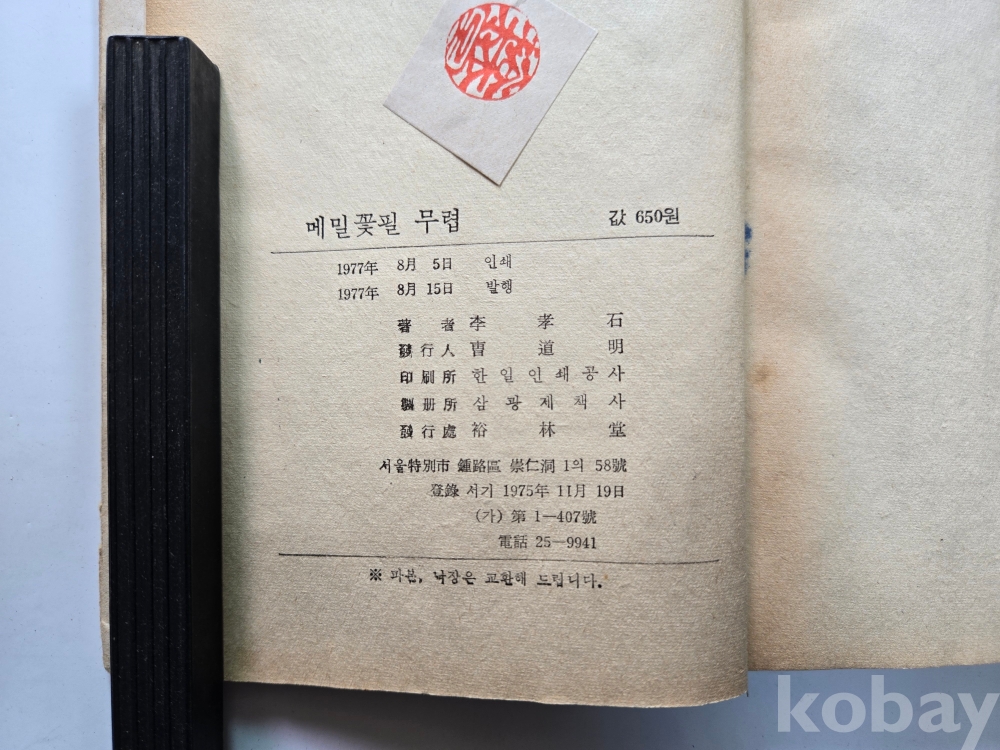 메밀꽃필 무렵 값 650원
1977年 8月 5日 인쇄
1977年 8月 15日 발행
著者 李孝石
發行人 曺道明
印刷所 한일인쇄공사
製册所 삼광제책사
發行處 裕林堂
서울特別市 鍾路區 崇仁洞 1의 58號
登錄 서기 1975年 11月 19日
(가) 第 1—407號
電話 25—9941
※ 파본, 낙장은 교환해 드립니다.
kobay